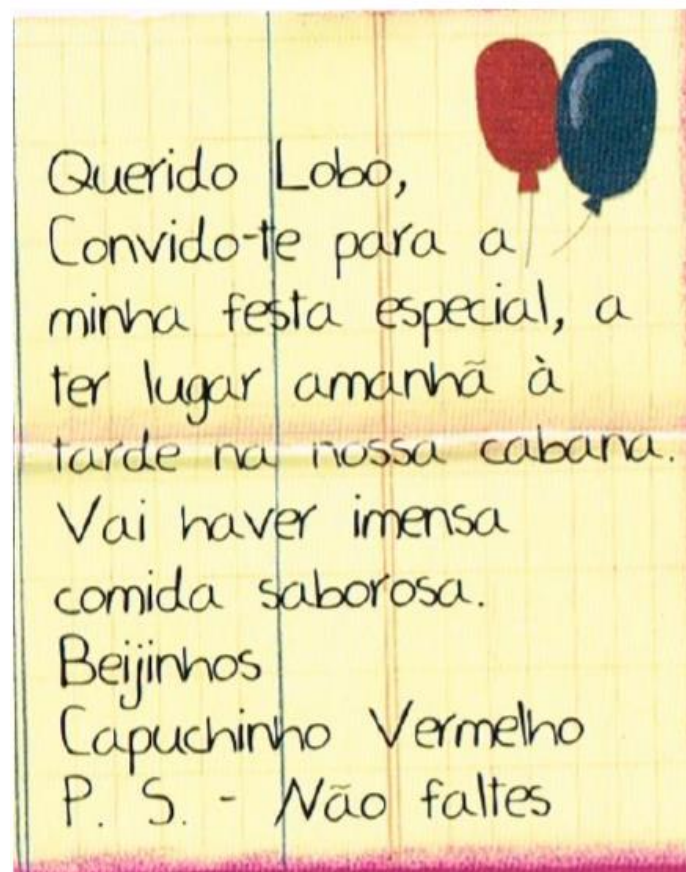 Querido Lobo,
Convido-te para a
minha festa especial, a
ter lugar amanhã à
tarde na nossa cabana.
Vai haver imensa
comida saborosa.
Beijinhos
Capuchinho Vermelho
P. S. - Não faltes